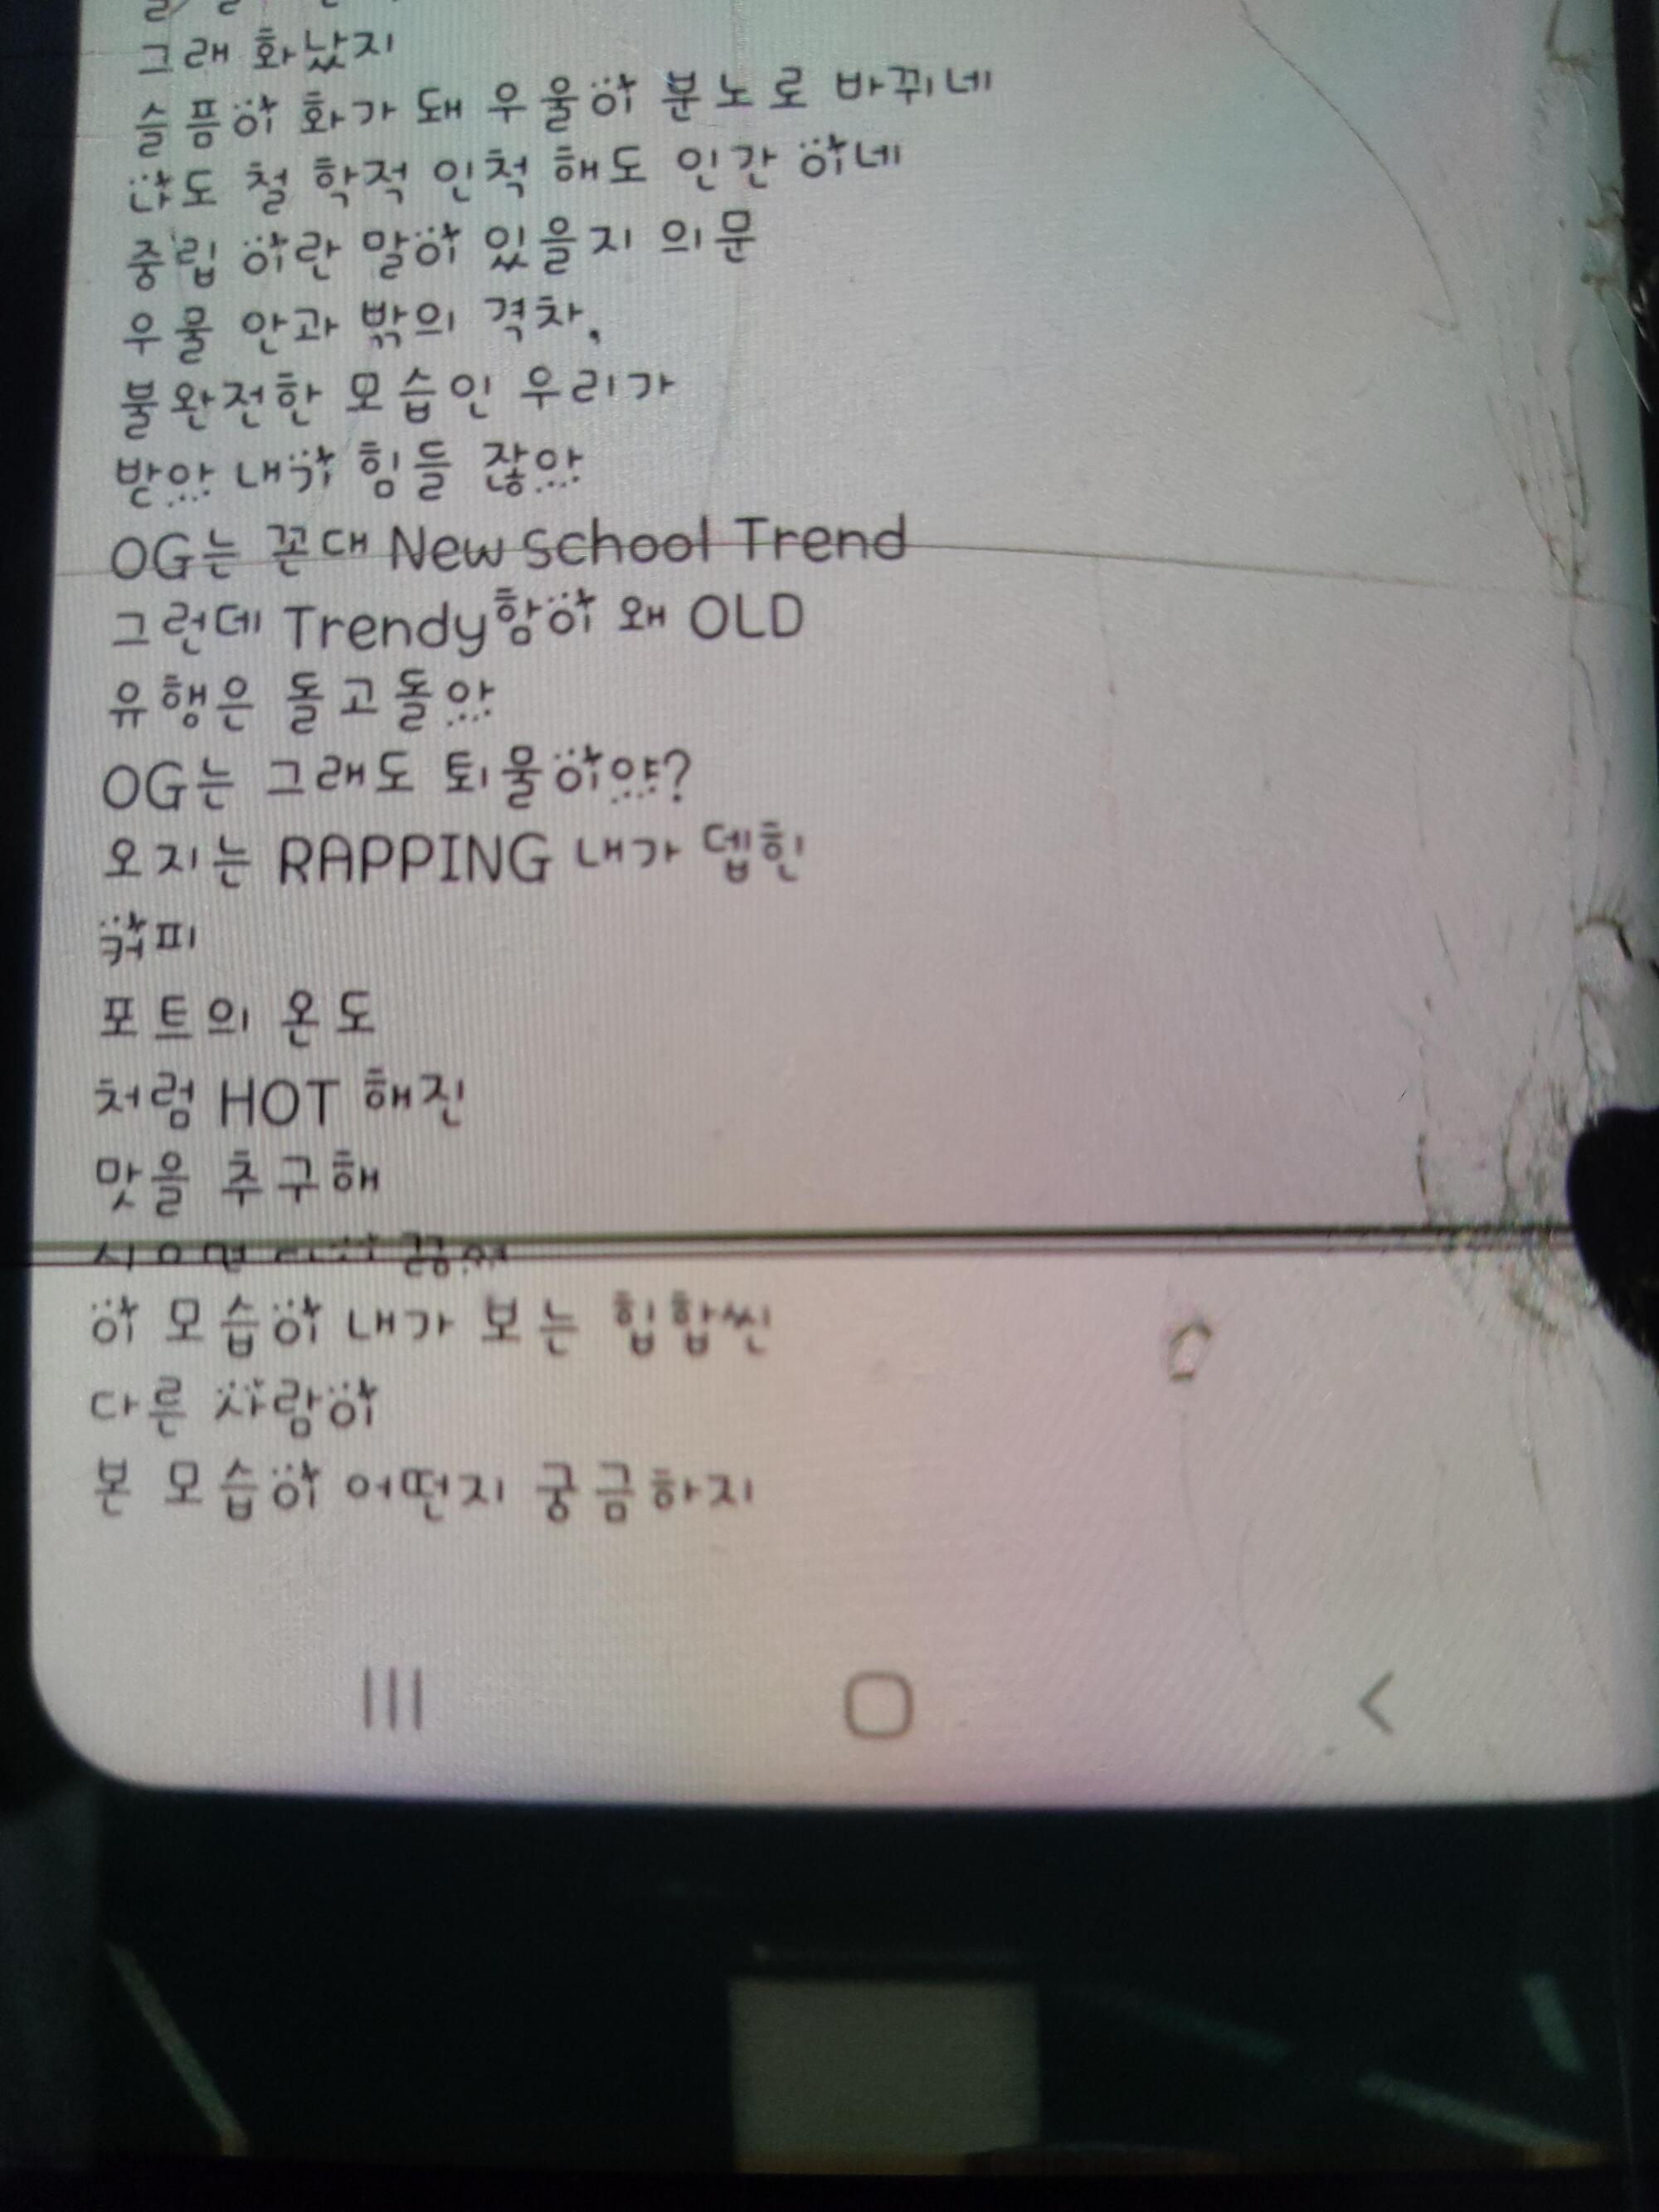 그래 화났지
슬픔이 화가 돼 우울이 분노로 바뀌네
나도 철학적 인척 해도 인간 이네
중립 이란 말이 있을지 의문
우물 안과 밖의 격차.
불완전한 모습인 우리가
받아 내기 힘들 잖아
OG는 꼰대 New school Trend
그런데 Trendy함이 왜 OLD
유행은 돌고돌아
OG는 그래도 퇴물이야?
오지는 RAPPING 내가 뎁힌
커피
포트의 온도
처럼 HOT 해진
맛을 추구해
이 모습이 내가 보는 힙합씬
다른 사람이
본 모습이 어떤지 궁금하지